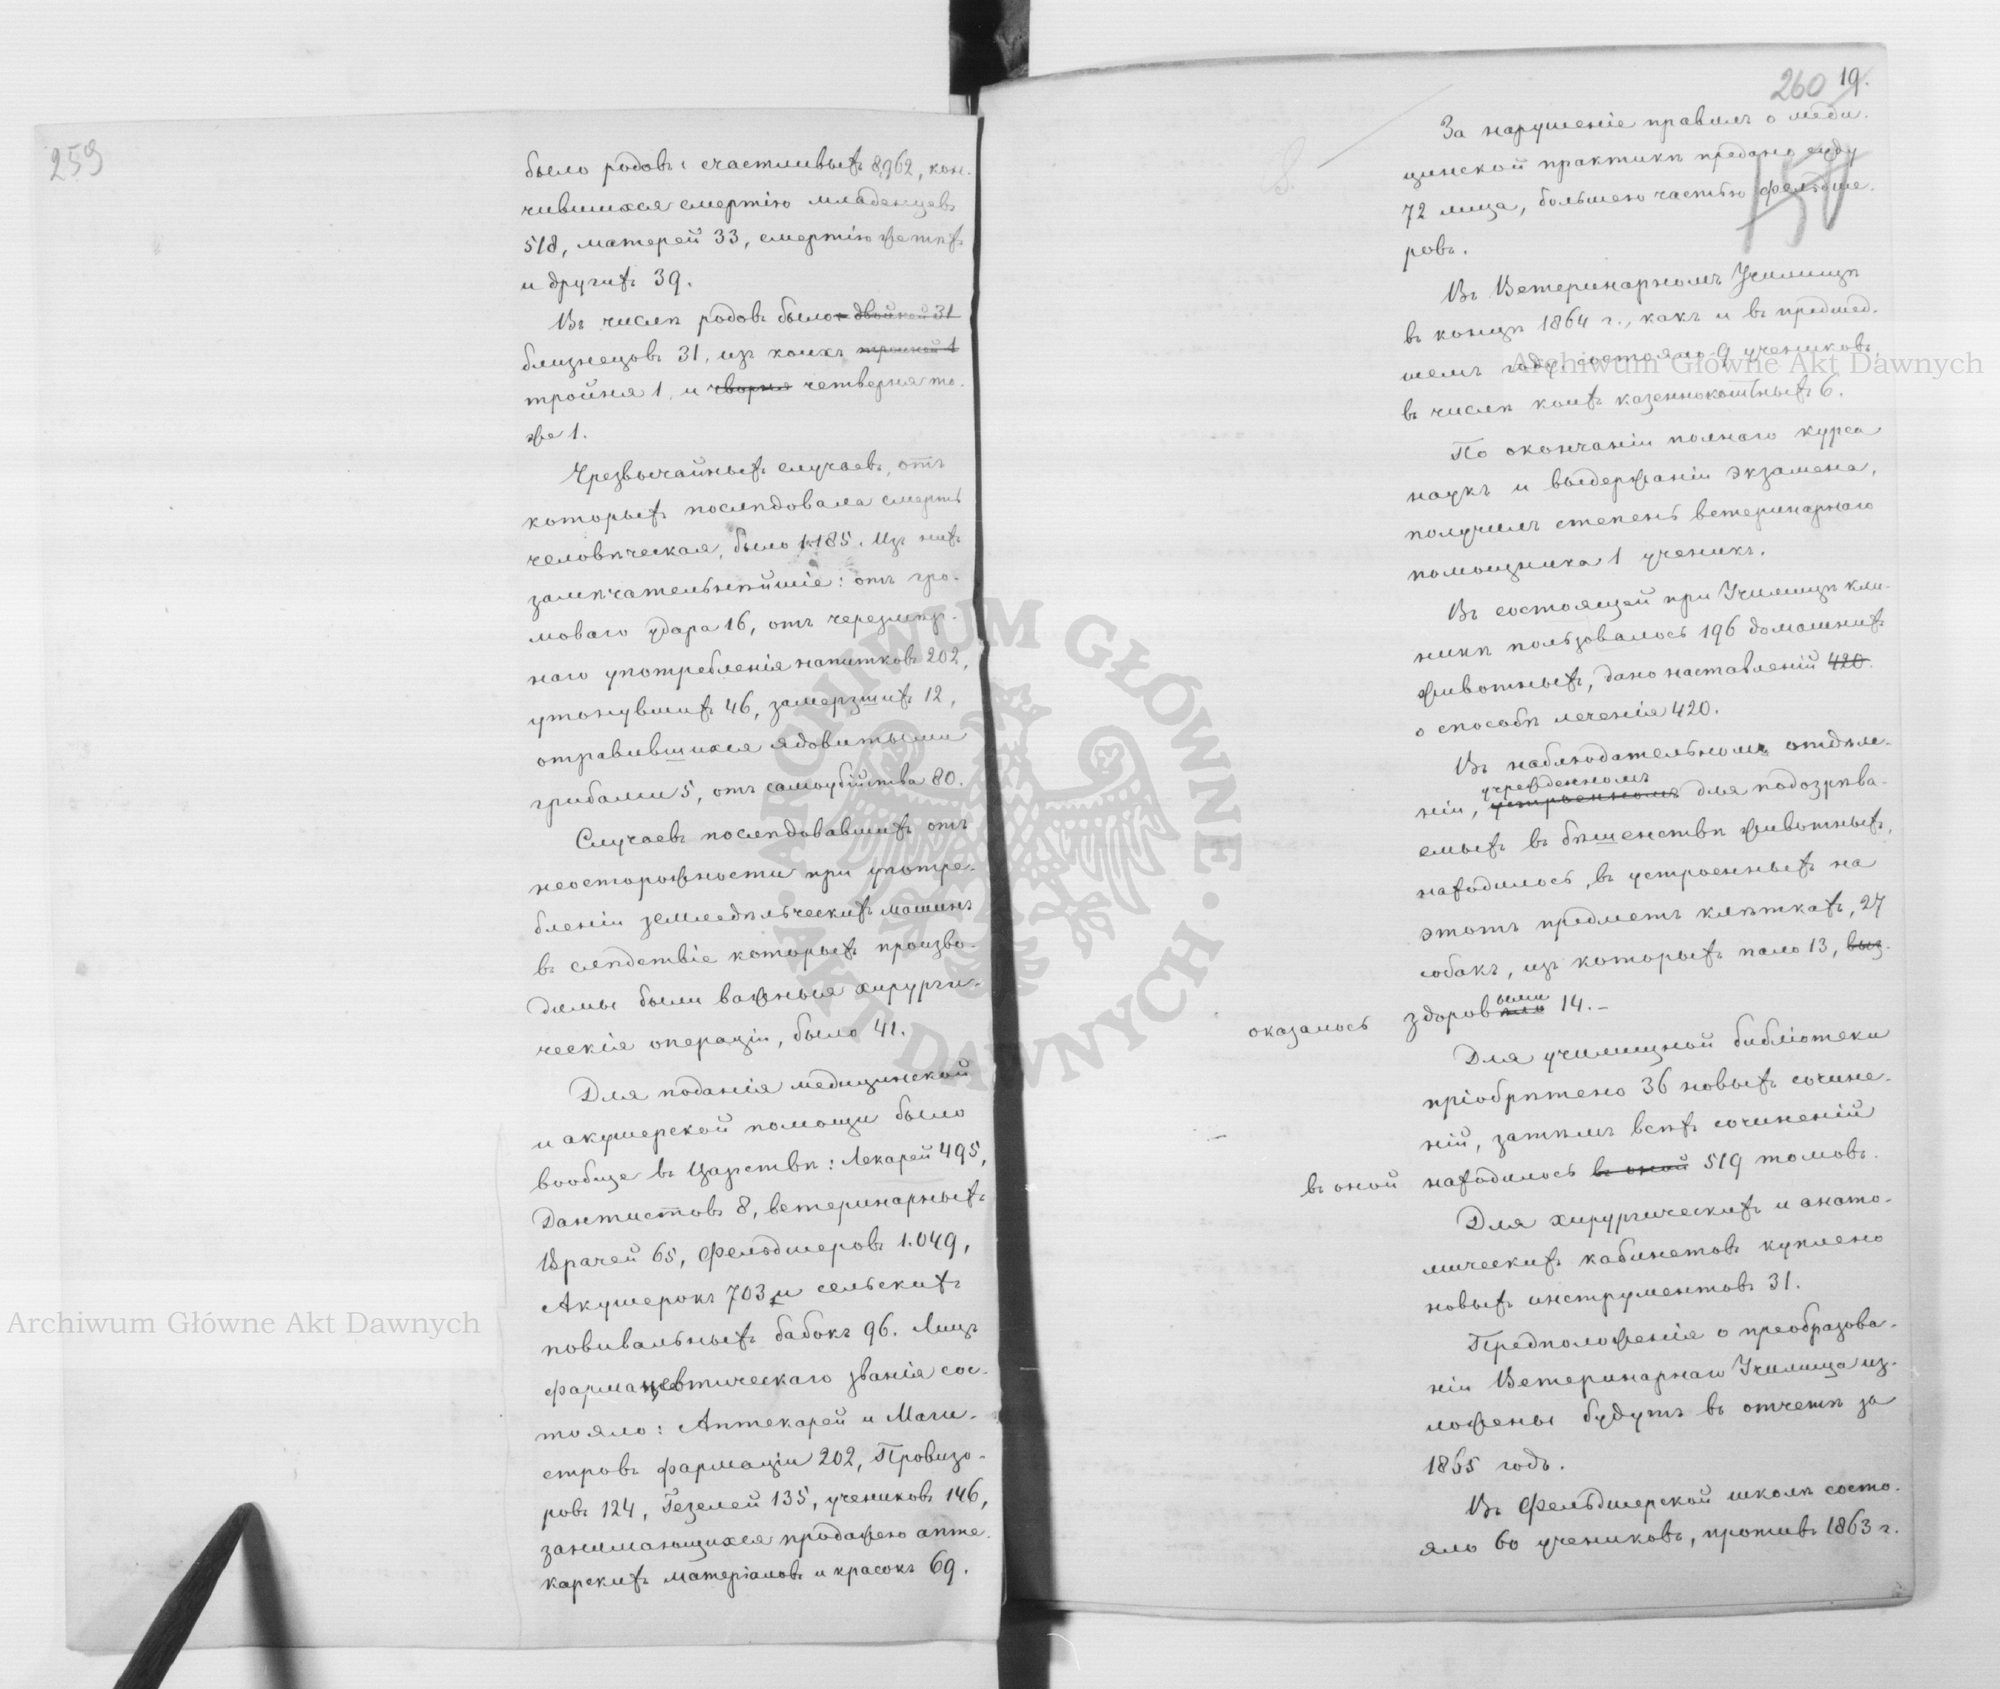 259
было родовъ: счастливыхъ 8,962, кон-
чившихся смертію младенцевъ
518, матерей 33, смертію тѣхъ
и другихъ 39.
Въ числѣ родовъ было двойной 31
близнецовъ 31, изъ коихъ тройной 1
тройня 1, и чворня четверня то-
же 1.
Чрезвычайныхъ случаевъ, отъ
которыхъ послѣдовала смерть
человѣческая, было 1.185. Изъ нихъ
замѣчательнѣйшіе: отъ гро-
моваго удара 16, отъ чрезмѣр-
наго употребленія напитковъ 202,
утонувшихъ 46, замерзшихъ 12,
отравившихся ядовитыми
грибами 5, отъ самоубійства 80.
Случаевъ послѣдовавшихъ отъ
неосторожности при употре-
бленіи земледѣльческихъ машинъ
въ слѣдствіе которыхъ произво-
димы были важныя хирурги-
ческія операціи, было 41.
Для поданія медицинской
и акушерской помощи было
вообще въ Царствѣ: Лекарей 495,
Дантистовъ 8, ветеринарныхъ
Врачей 65, Фельдшеровъ 1.049,
Акушерокъ 703, и сельскихъ
повивальныхъ бабокъ 96. Лицъ
фармацевтическаго званія сос-
тояло: Аптекарей и Маги-
стровъ фармаціи 202, Провизо-
ровъ 124, Гезелей 135, учениковъ 146,
занимающихся продажею апте-
карскихъ матеріаловъ и красокъ 69.
260 19.
За нарушеніе правилъ о меди-
цинской практикѣ предано суду
72 лица, большею частью фельдше-
ровъ.
Въ Ветеринарномъ Училищѣ
въ концѣ 1864 г., какъ и въ предшед-
шемъ году, состояло 9 учениковъ,
въ числѣ коихъ казеннокоштныхъ 6.
По окончаніи полнаго курса
наукъ и выдержаніи экзамена,
получилъ степень ветеринарнаго
помощника 1 ученикъ.
Въ состоящей при Училищѣ кли-
никѣ пользовалось 196 домашнихъ
животныхъ, дано наставленій 420
о способѣ леченія 420.
Въ наблюдательномъ отдѣле-
учрежденномъ
ніи, устроенномъ для подозрѣва-
емыхъ въ бѣшенствѣ животныхъ,
находилось, въ устроенныхъ на
этотъ предметъ клѣткахъ, 27
собакъ, изъ которыхъ пало 13, выз-
оказалось здоровыми 14.-
Для училищной библіотеки
пріобрѣтено 36 новыхъ сочине-
ній, затѣмъ всѣхъ сочиненій
въ оной находилось въ оной 519 томовъ.
Для хирургическихъ и анато-
мическихъ кабинетовъ куплено
новыхъ инструментовъ 31.
Предположенія о преобразова-
ніи Ветеринарнаго Училища из-
ложены будутъ въ отчетѣ за
1865 годъ.
Въ Фельдшерской школѣ состо-
яло 60 учениковъ, противъ 1863 г.
Archiwum Główne Akt Dawnych
Archiwum Główne Akt Dawnych
ARCHIWUM GŁÓWNE · AKT DAWNYCH ·